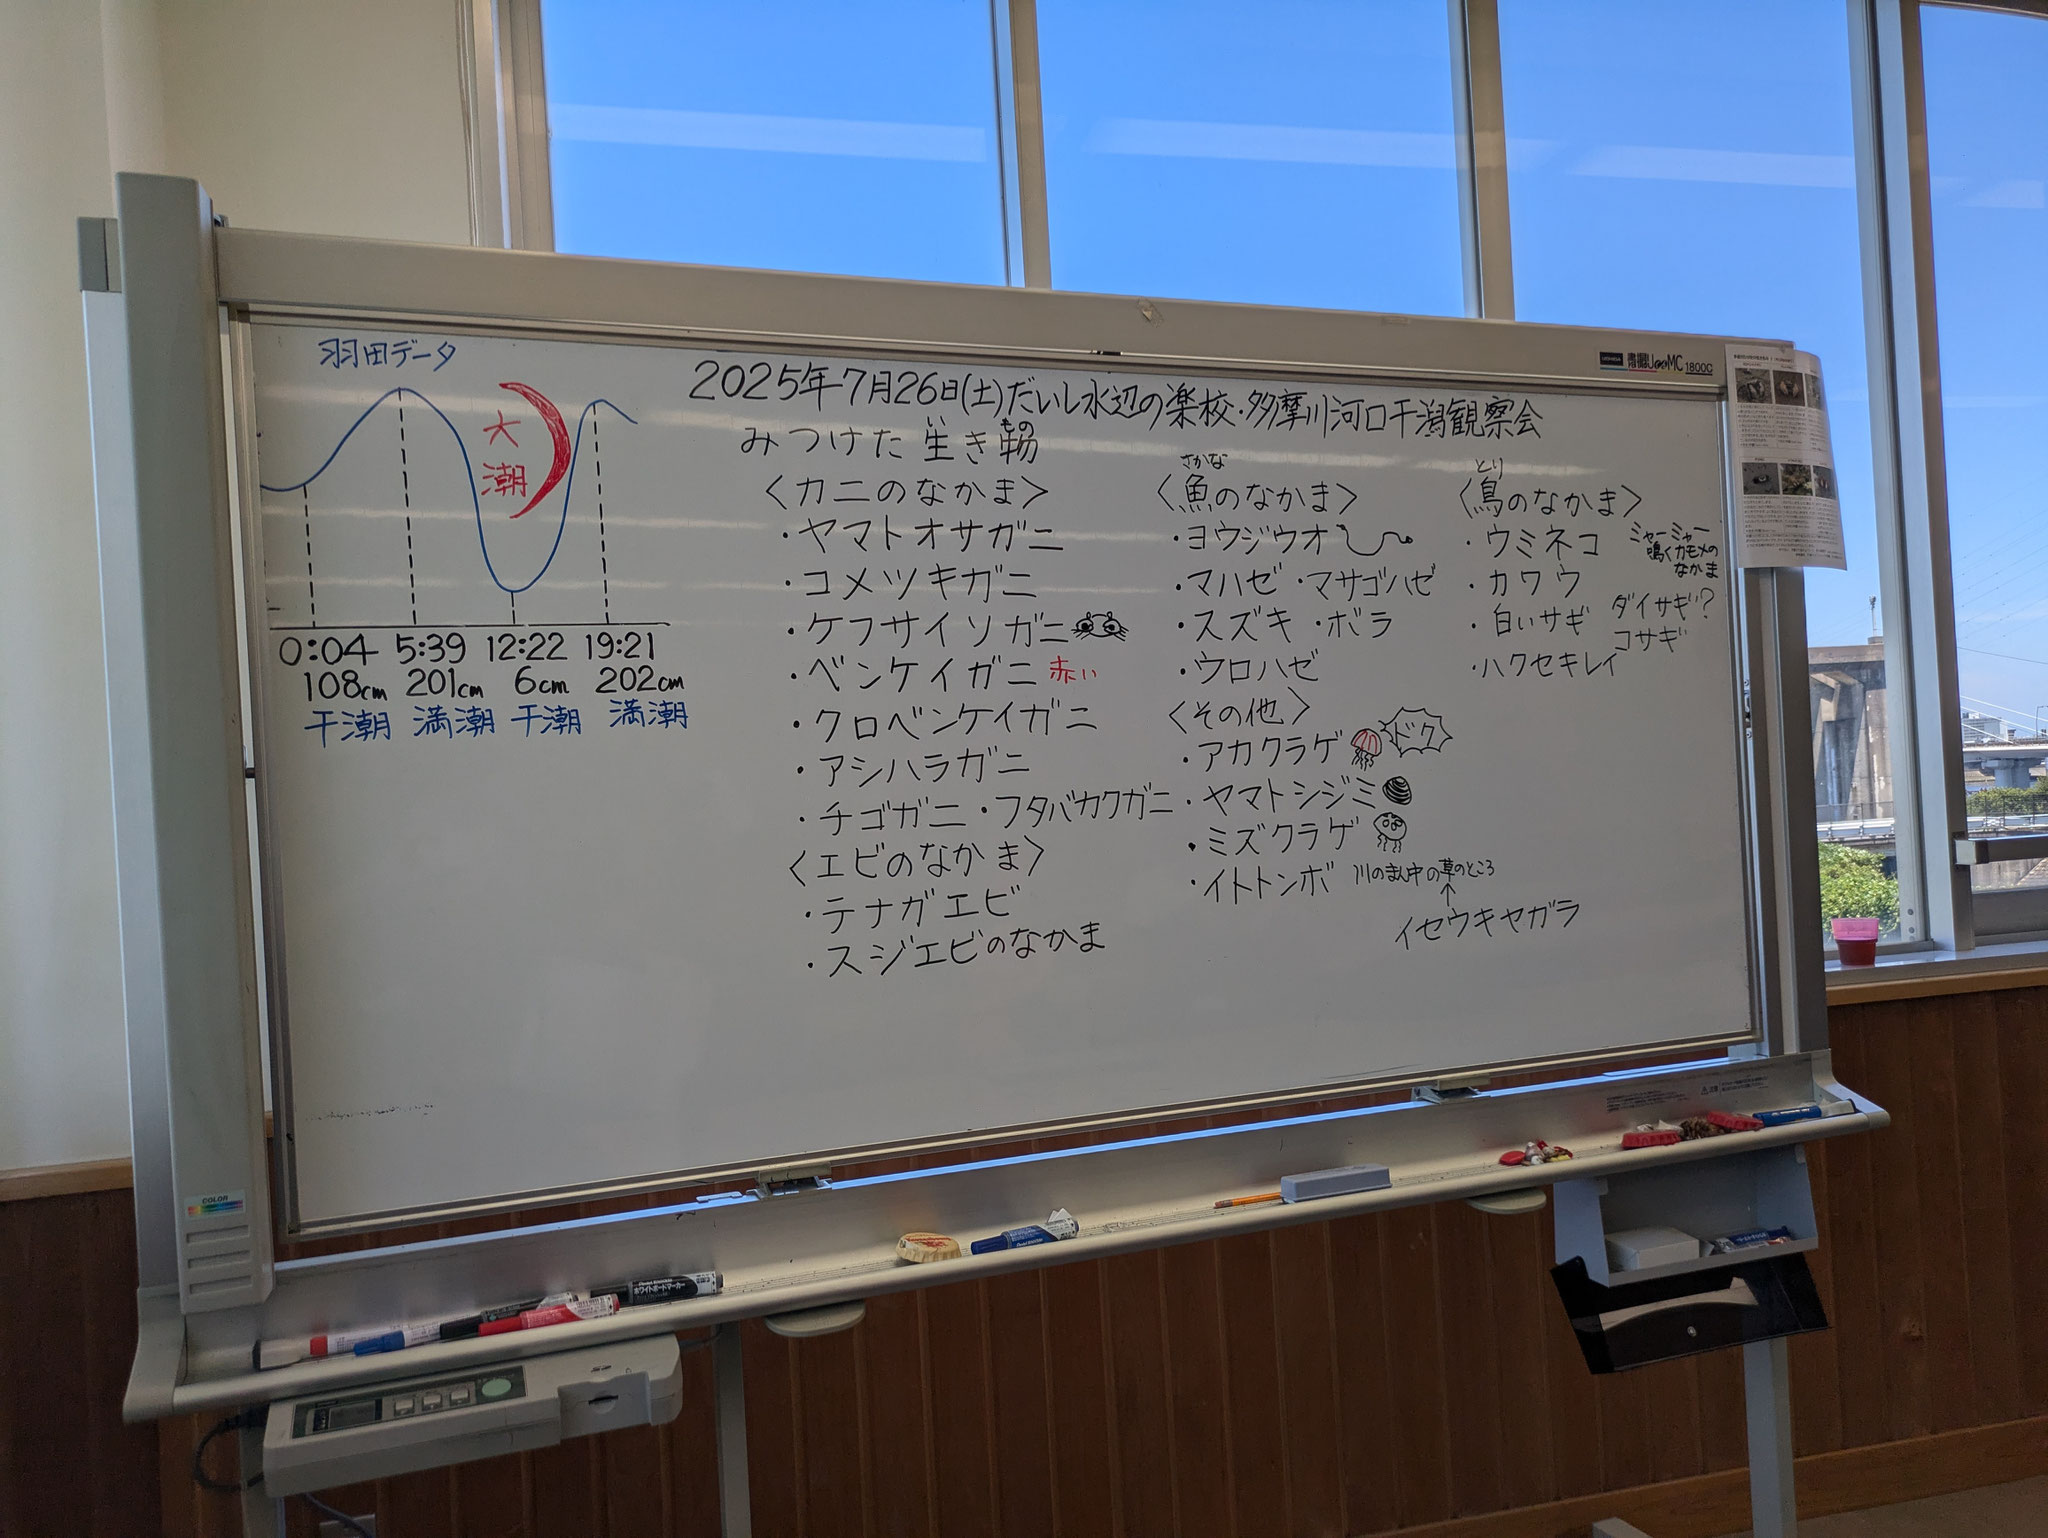 羽田データ
大
潮
0:04 5:39 12:22 19:21
108cm 201cm 6cm 202cm
干潮 満潮 干潮 満潮
2025年7月26日(土)だいし水辺の楽校・多摩川河口干潟観察会
い もの
みつけた生き物
〈カニのなかま〉
・ヤマトオサガニ
・コメツキガニ
・ケフサイソガニ
・ベンケイガニ 赤い
・クロベンケイガニ
・アシハラガニ
・チゴガニ ・フタバカクガニ
〈エビのなかま〉
・テナガエビ
・スジエビのなかま
さかな
〈魚のなかま〉
・ヨウジウオ
・マハゼ ・マサゴハゼ
・スズキ ・ボラ
・ウロハゼ
〈その他〉
・アカクラゲ ドク
・ヤマトシジミ
・ミズクラゲ
・イトトンボ 川のまん中の草のところ
↑
イセウキヤガラ
とり
〈鳥のなかま〉
・ウミネコ ミャーミャー
鳴くカモメの
なかま
・カワウ
・白いサギ ダイサギ?
コサギ
・ハクセキレイ
1800C
COLOR
ホワイトボードマーカー